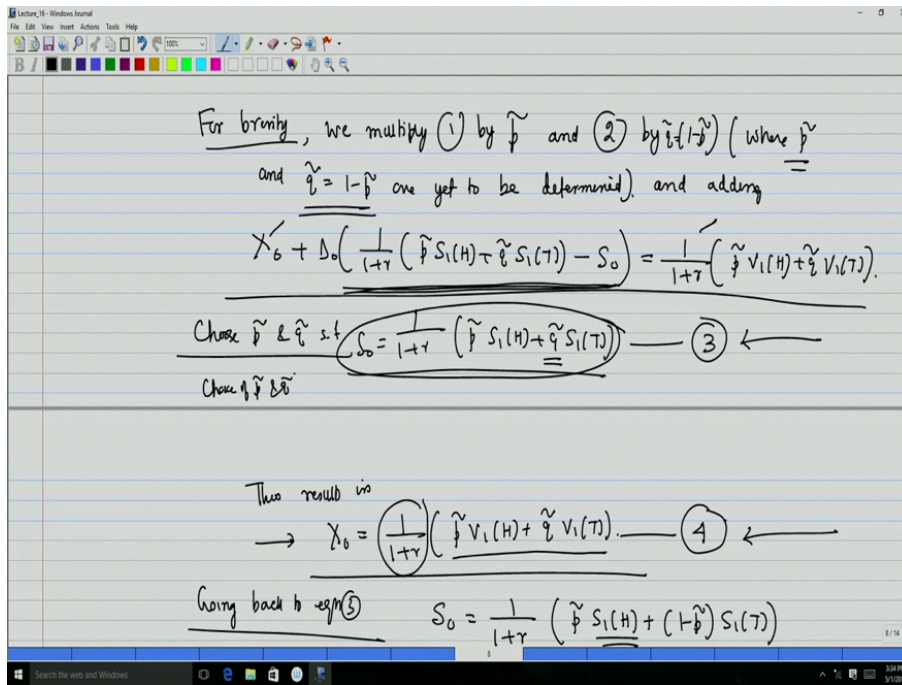 Lecture_16 - Windows Journal
File Edit View Insert Actions Tools Help
100%
B I
For brevity, we multiply ① by p̃ and ② by q̃=(1-p̃) (where p̃
and q̃ = 1-p̃ are yet to be determined). and adding
X₀ + Δ₀( 1/(1+r) ( p̃ S₁(H) + q̃ S₁(T) ) - S₀ ) = 1/(1+r) ( p̃ V₁(H) + q̃ V₁(T) ).
Choose p̃ & q̃ s.t. S₀ = 1/(1+r) ( p̃ S₁(H) + q̃ S₁(T) ) — ③ ←
Choice of p̃ & q̃
This result in
→ X₀ = 1/(1+r) ( p̃ V₁(H) + q̃ V₁(T). — ④ ←
Going back to eqn ③ S₀ = 1/(1+r) ( p̃ S₁(H) + (1-p̃) S₁(T) )
8 / 14
8
Search the web and Windows
3:34 PM
5/1/20